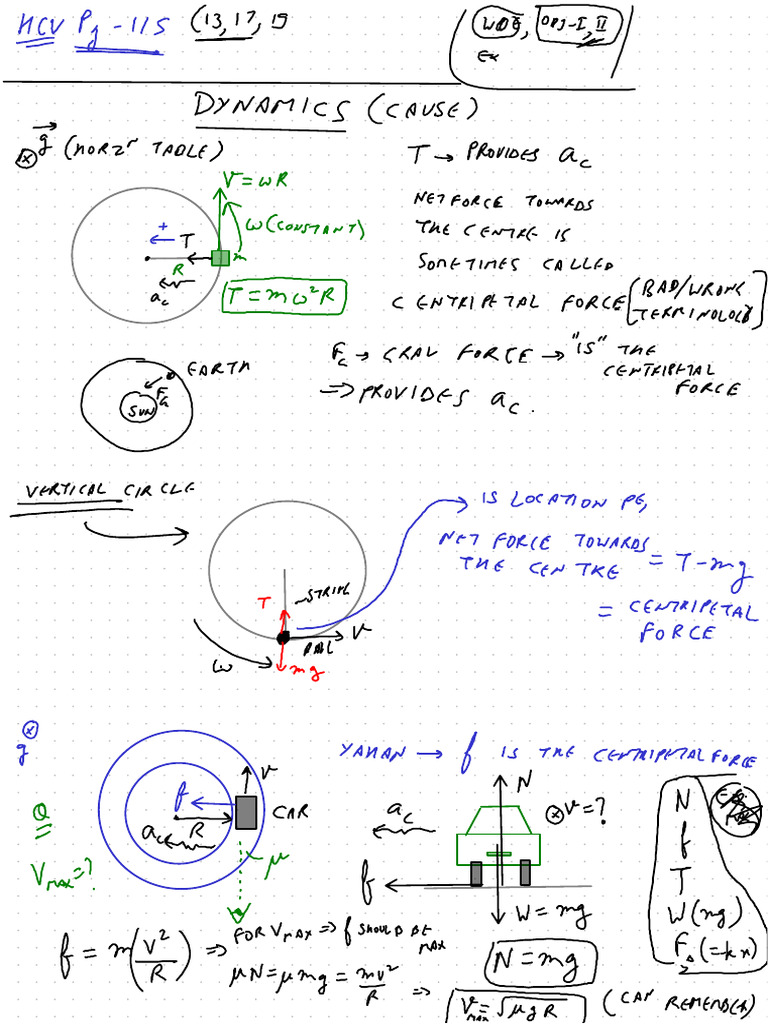 HCV Pg - 115 (13, 17, 19
WOE, OBJ-I, II
Ex
DYNAMICS (CAUSE)
g (HORZⁿ TABLE)
V = ωR
ω(CONSTANT)
+
T
m
R
a_c
T = mω²R
T → PROVIDES a_c
NET FORCE TOWARDS
THE CENTRE IS
SOMETIMES CALLED
CENTRIPETAL FORCE [BAD/WRONG
TERMINOLOGY]
EARTH
F_G
SUN
F_G → GRAV FORCE → "IS" THE
CENTRIPETAL
FORCE
⇒ PROVIDES a_c.
VERTICAL CIRCLE
T
STRING
V
BALL
ω
mg
IS LOCATION PE,
NET FORCE TOWARDS
THE CENTRE = T - mg
= CENTRIPETAL
FORCE
g
Q
V_max = ?
f
V
CAR
R
a_c
μ
YAMAN → f IS THE CENTRIPETAL FORCE
N
a_c
V = ?
f
W = mg
N = mg
N
f
T
W (mg)
F_s (= kx)
f = m(V²/R) ⇒ FOR V_max ⇒ f SHOULD BE MAX
μN = μmg = mv²/R ⇒ V_max = √μgR (CAN REMEMBER)